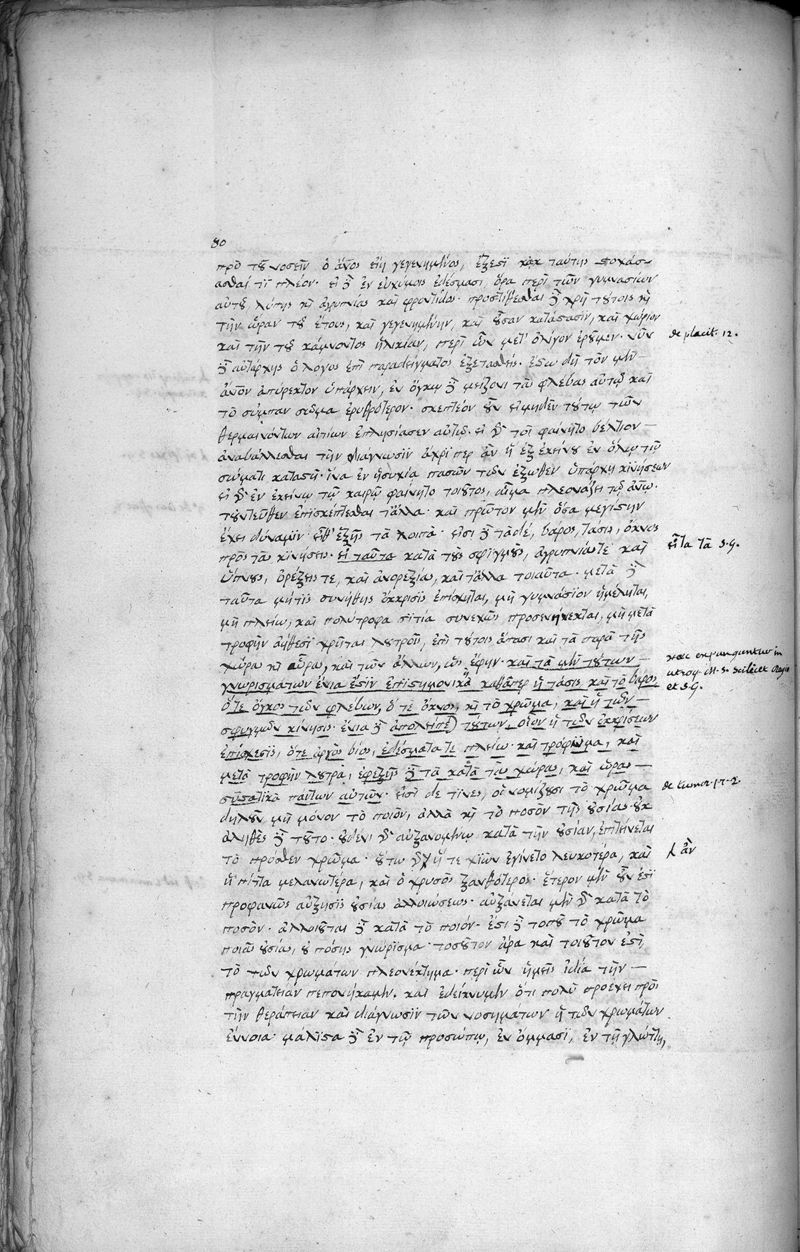 80
πρὸ τοῦ νοσεῖν ὁ ἄνος εἴη γεγενημένος, ἔξεστι κἀκ ταύτης στοχάσ-
ασθαι τι πλέον· εἰ γὰρ ἐν εὐχύμοις ἐδέσμασι, ὅρα περὶ τῶν γυμνασίων
αὐτοῦ, λύπης καὶ ἀγρυπνίας καὶ φροντίδος· προστίθεσθαι γὰρ χρὴ τούτοις καὶ
τὴν ὥραν τοῦ ἔτους, καὶ γεγενημένην, καὶ οὖσαν κατάστασιν, καὶ χωρίον
καὶ τὴν τοῦ κάμνοντος ἡλικίαν, περὶ ὧν μετ' ὀλίγον ἐροῦμεν· νῦν de placit. 12.
γὰρ αὐτάρκης ὁ λόγος ἐπὶ παραδείγματος ἐξετασθείς. ἔστω δὴ τὸν μὲν
ἄνον ἀπύρεκτον ὑπάρχειν, ἐν ὄγκῳ γὰρ μείζονι τὰς φλέβας αὐτῷ καὶ
τὸ σύμπαν σῶμα ἐρυθρότερον· σκεπτέον οὖν εἰ μηδὲν τούτῳ τῶν
θερμαινόντων αἰτίων ἐπλησίασεν αὐτῷ· εἰ δέ τοι φαίνοιτο βέλτιον
ἀναβάλλεσθαι τὴν διάγνωσιν ἄχρι περ ἂν ἡ ἐξ ἐκείνου ἐν ὅλῳ τῷ
σώματι καταστῇ· ἵνα ἐν ἡσυχίᾳ πασῶν τῶν ἔξωθεν ὑπάρχῃ κινήσεων
εἰ δ' ἐν ἐκείνῳ τῷ καιρῷ φαίνοιτο τοιοῦτος, αἷμα πλεονάζει τῷ ἄνῳ.
τοὐντεῦθεν ἐπισκέπτεσθαι τἆλλα· καὶ πρῶτον μὲν ὅσα μεγίστην
ἔχει δύναμιν· εἶθ' ἑξῆς τὰ λοιπά· εἰσὶ γὰρ τάδε, βάρος, τάσις, ὄκνος
πρὸς τὰς κινήσεις· εἶ ταῦτα κατὰ τοὺς σφυγμούς, ἀγρυπνίας τε καὶ εἶτα τὰ S.G.
ὕπνους, ὀρέξεις τε, καὶ ἀνορεξίας, καὶ τἆλλα τοιαῦτα· μετὰ γὰρ
ταῦτα μή τις συνήθης ἔκκρισις ἐπέσχηται, μὴ γυμνάσιον ἠμέληται,
μὴ πλείω, καὶ πολύτροφα σιτία συνεχῶς προσενήνεκται, μὴ μετὰ
τροφὴν ἀήθεσι χρῆται λουτροῖς, ἐπὶ τούτοις ἅπασι καὶ τὰ παρὰ τῆς
χώρας καὶ ὥρας, καὶ τῶν ἄλλων, ὡς ἔφην· καὶ τὰ μὲν τούτων haec expunguntur in
γνωρισμάτων ἔνια ἐστιν ἐπιστημονικὰ καθάπερ ἡ τάσις, καὶ τὸ βάρος, utroq. M.S. scilicet
ὅ τε ὄγκος τῶν φλεβῶν, ὅ τε ὄκνος, καὶ τὸ χρῶμα, καὶ ἡ τῶν et S.G.
σφυγμῶν κίνησις· ἔνια γὰρ ἀπολείπε τούτων, οἷον ἡ τῶν ἐκκρίσεων
ἐπίσχεσις, ὅτε ἀργὸς βίος, ἐδέσματά τε πλείω· καὶ τρόφιμα, καὶ
μετὰ τροφὴν λουτρά, ἐφεξῆς γὰρ τὰ κατὰ τὰς χώρας, καὶ ὥρας
συστατικὰ πάντων αὐτῶν· εἰσὶ δέ τινες, οἳ νομίζουσι τὸ χρῶμα de tumor. 17-2
δηλοῦν μὴ μόνον τὸ ποιόν, ἀλλὰ καὶ τὸ ποσὸν τῆς οὐσίας· οὐκ
ἀληθὲς γὰρ τοῦτο· οὐδενὶ δ' αὐξανομένῳ κατὰ τὴν οὐσίαν, ἐπιτείνεται
τὸ πρόσθεν χρῶμα· οὕτω δ' ἥ τε χιὼν ἐγίνετο λευκοτέρα, καὶ λ ἂν
ἡ πίττα μελαντέρα, καὶ ὁ χρυσὸς ξανθότερος· ἕτερον μὲν οὖν ἐστὶ
προφανῶς αὔξησις οὐσίας ἀλλοιώσεως· αὐξάνεται μὲν γὰρ κατὰ τὸ
ποσόν· ἀλλοιοῦται γὰρ κατὰ τὸ ποιόν· ἔστι γὰρ τοπ τὸ χρῶμα
ποιᾶς οὐσίας, οὐ πόσης γνώρισμα· τοσοῦτον ἄρα καὶ τοιοῦτον ἐστὶ,
τὸ τῶν χρωμάτων πλεονέκτημα· περὶ ὧν ἡμεῖς ἰδίᾳ τὴν
πραγματείαν πεποιήκαμεν. καὶ ἐδείκνυμεν ὅτι πολὺ προέχει πρὸς
τὴν θεραπείαν καὶ διάγνωσιν τῶν νοσημάτων ἡ τῶν χρωμάτων
ἔννοια· μάλιστα γὰρ ἐν τῷ προσώπῳ, ἐν ὄμμασι, ἐν τῇ γλώττῃ,